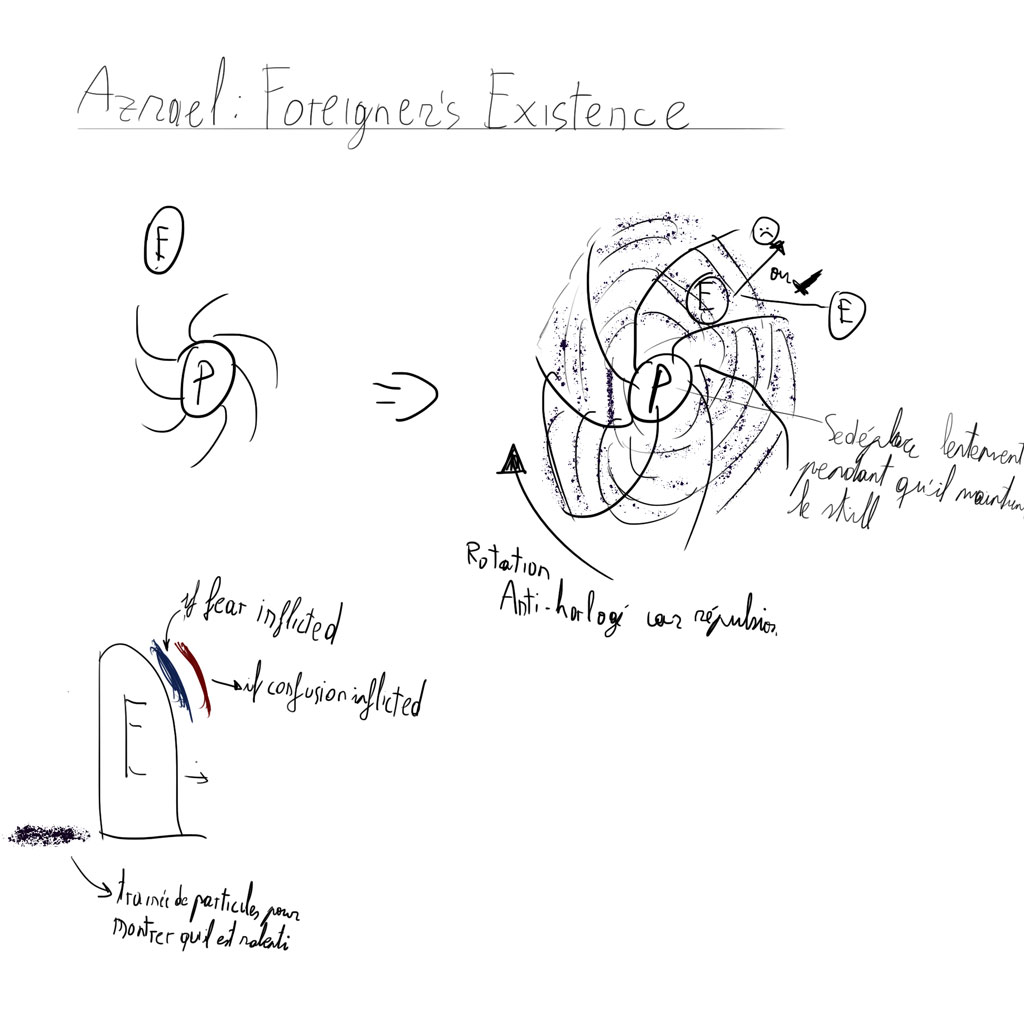 Azrael: Foreigner's Existence
E
P
E
ou
E
P
Se déplace lentement
pendant qu'il maintien
le skill
Rotation
Anti-horlogé car répulsion
if fear inflicted
if confusion inflicted
E
trainée de particules pour
montrer qu'il est ralenti